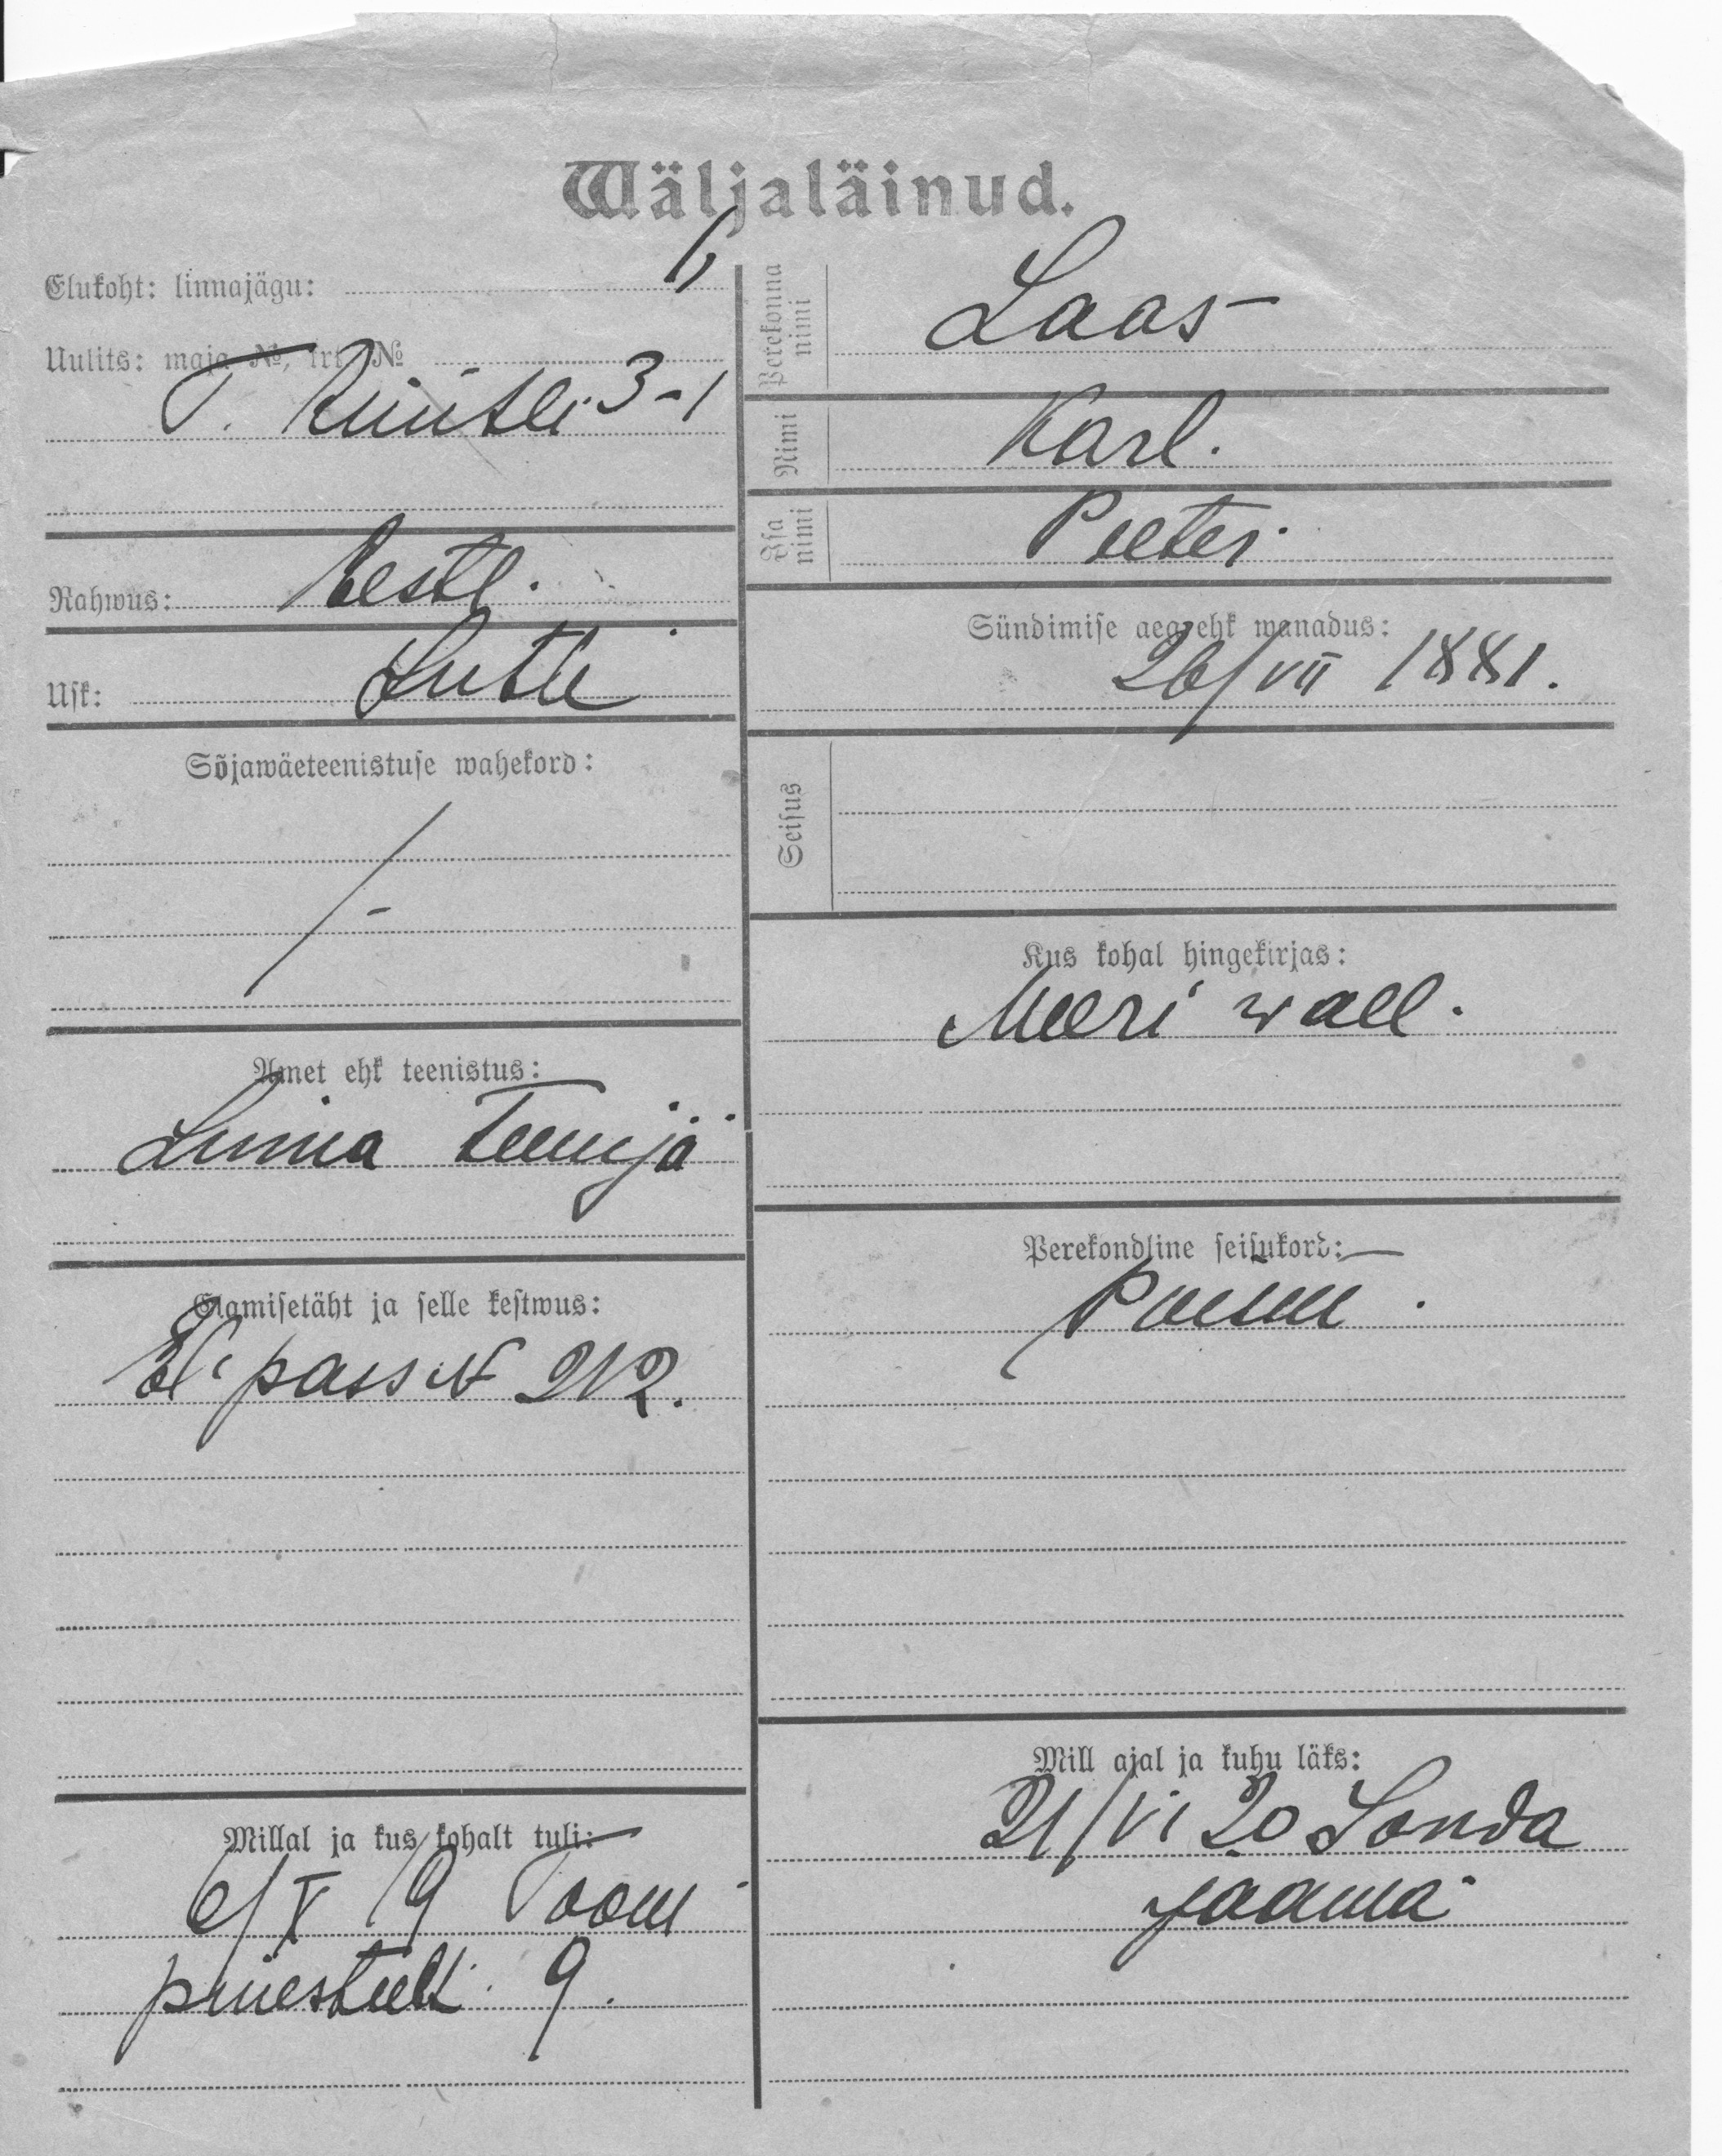 Wäljaläinud.
Elukoht: linnajägu: I,
Uulits: maja №, krt. №
T. Rüütli 3-1
Rahwus: Eestl.
Usk: Luth
Sõjawäeteenistuse wahekord:
/-
Amet ehk teenistus:
Linna Teenija
Elamisetäht ja selle kestwus:
El. pass № 212.
Millal ja kus kohalt tuli:
6/X 19 Toom
puiesteelt. 9.
Perekonna nimi Laas
Nimi Karl.
Isa nimi Peeter
Sündimise aeg ehk wanadus:
26/VII 1881.
Seisus
Kus kohal hingekirjas:
Meeri wall.
Perekondline seisukord:
Mill ajal ja kuhu läks:
21/VI 20 Sonda
jaama